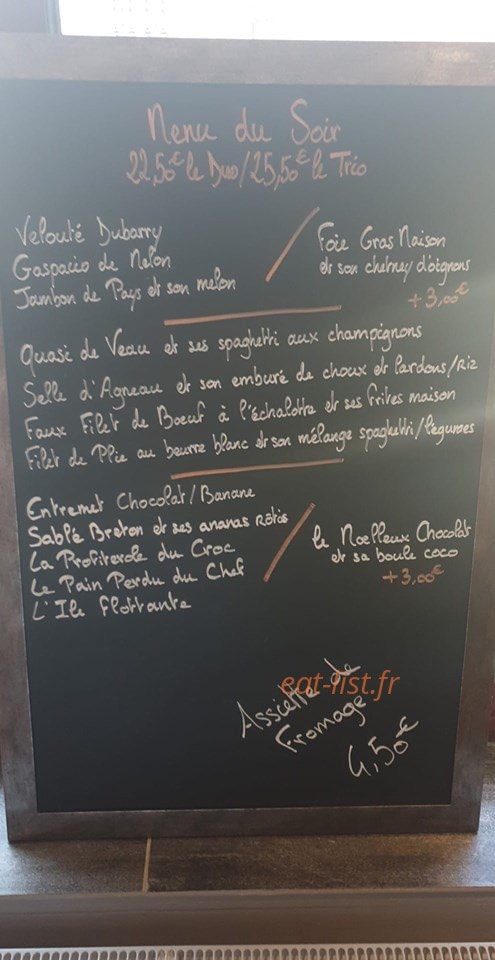 Menu du Soir
22,50€ le Duo/25,50€ le Trio
Velouté Dubarry
Gaspacio de Melon
Jambon de Pays et son melon
/
Foie Gras Maison
et son chetney d'oignons
+3,00€
Quasi de Veau et ses spaghetti aux champignons
Selle d'Agneau et son emburé de choux et Lardons/Riz
Faux Filet de Boeuf à l'échalotte et ses frites maison
Filet de Plie au beurre blanc et son mélange spaghetti/légumes
Entremet Chocolat/Banane
Sablé Breton et ses ananas Rôtis
La Profiterole du Croc
Le Pain Perdu du Chef
L'Ile Flottante
/
le Moelleux Chocolat
et sa boule coco
+3,00€
Assiette de
Fromage
4,50€
eat-list.fr